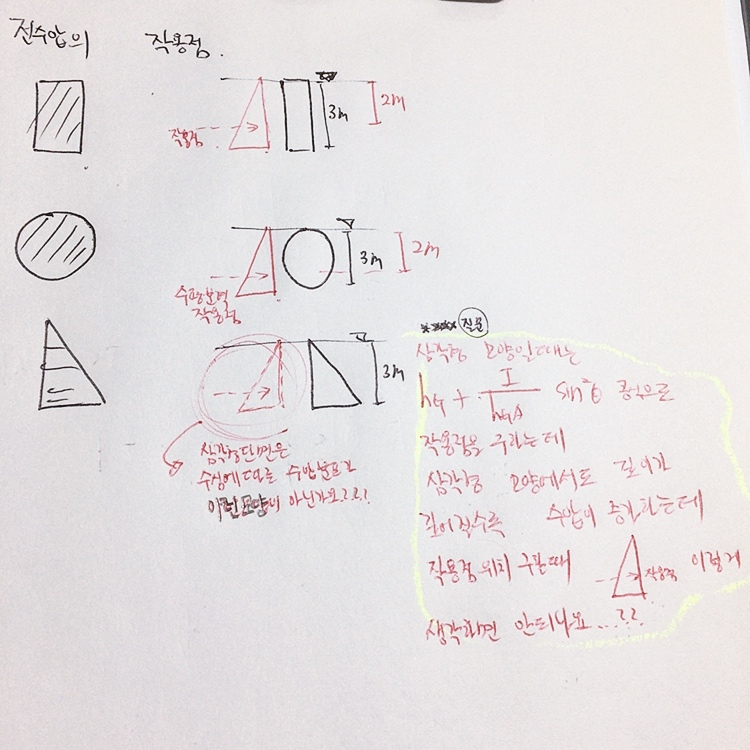 전수압의 작용점.
3m
2m
작용점
3m
2m
수평분력
작용점
3m
삼각형단면은
수심에 따른 수압분포가
이런모양이 아닌가요???!
질문
삼각형 모양일때는
hG + I/hGA sin²θ 공식으로
작용점을 구하는데
삼각형 모양에서도 깊이가
깊어질수록 수압이 증가하는데
작용점 위치 구할때 작용점 이렇게
생각하면 안되나요...???